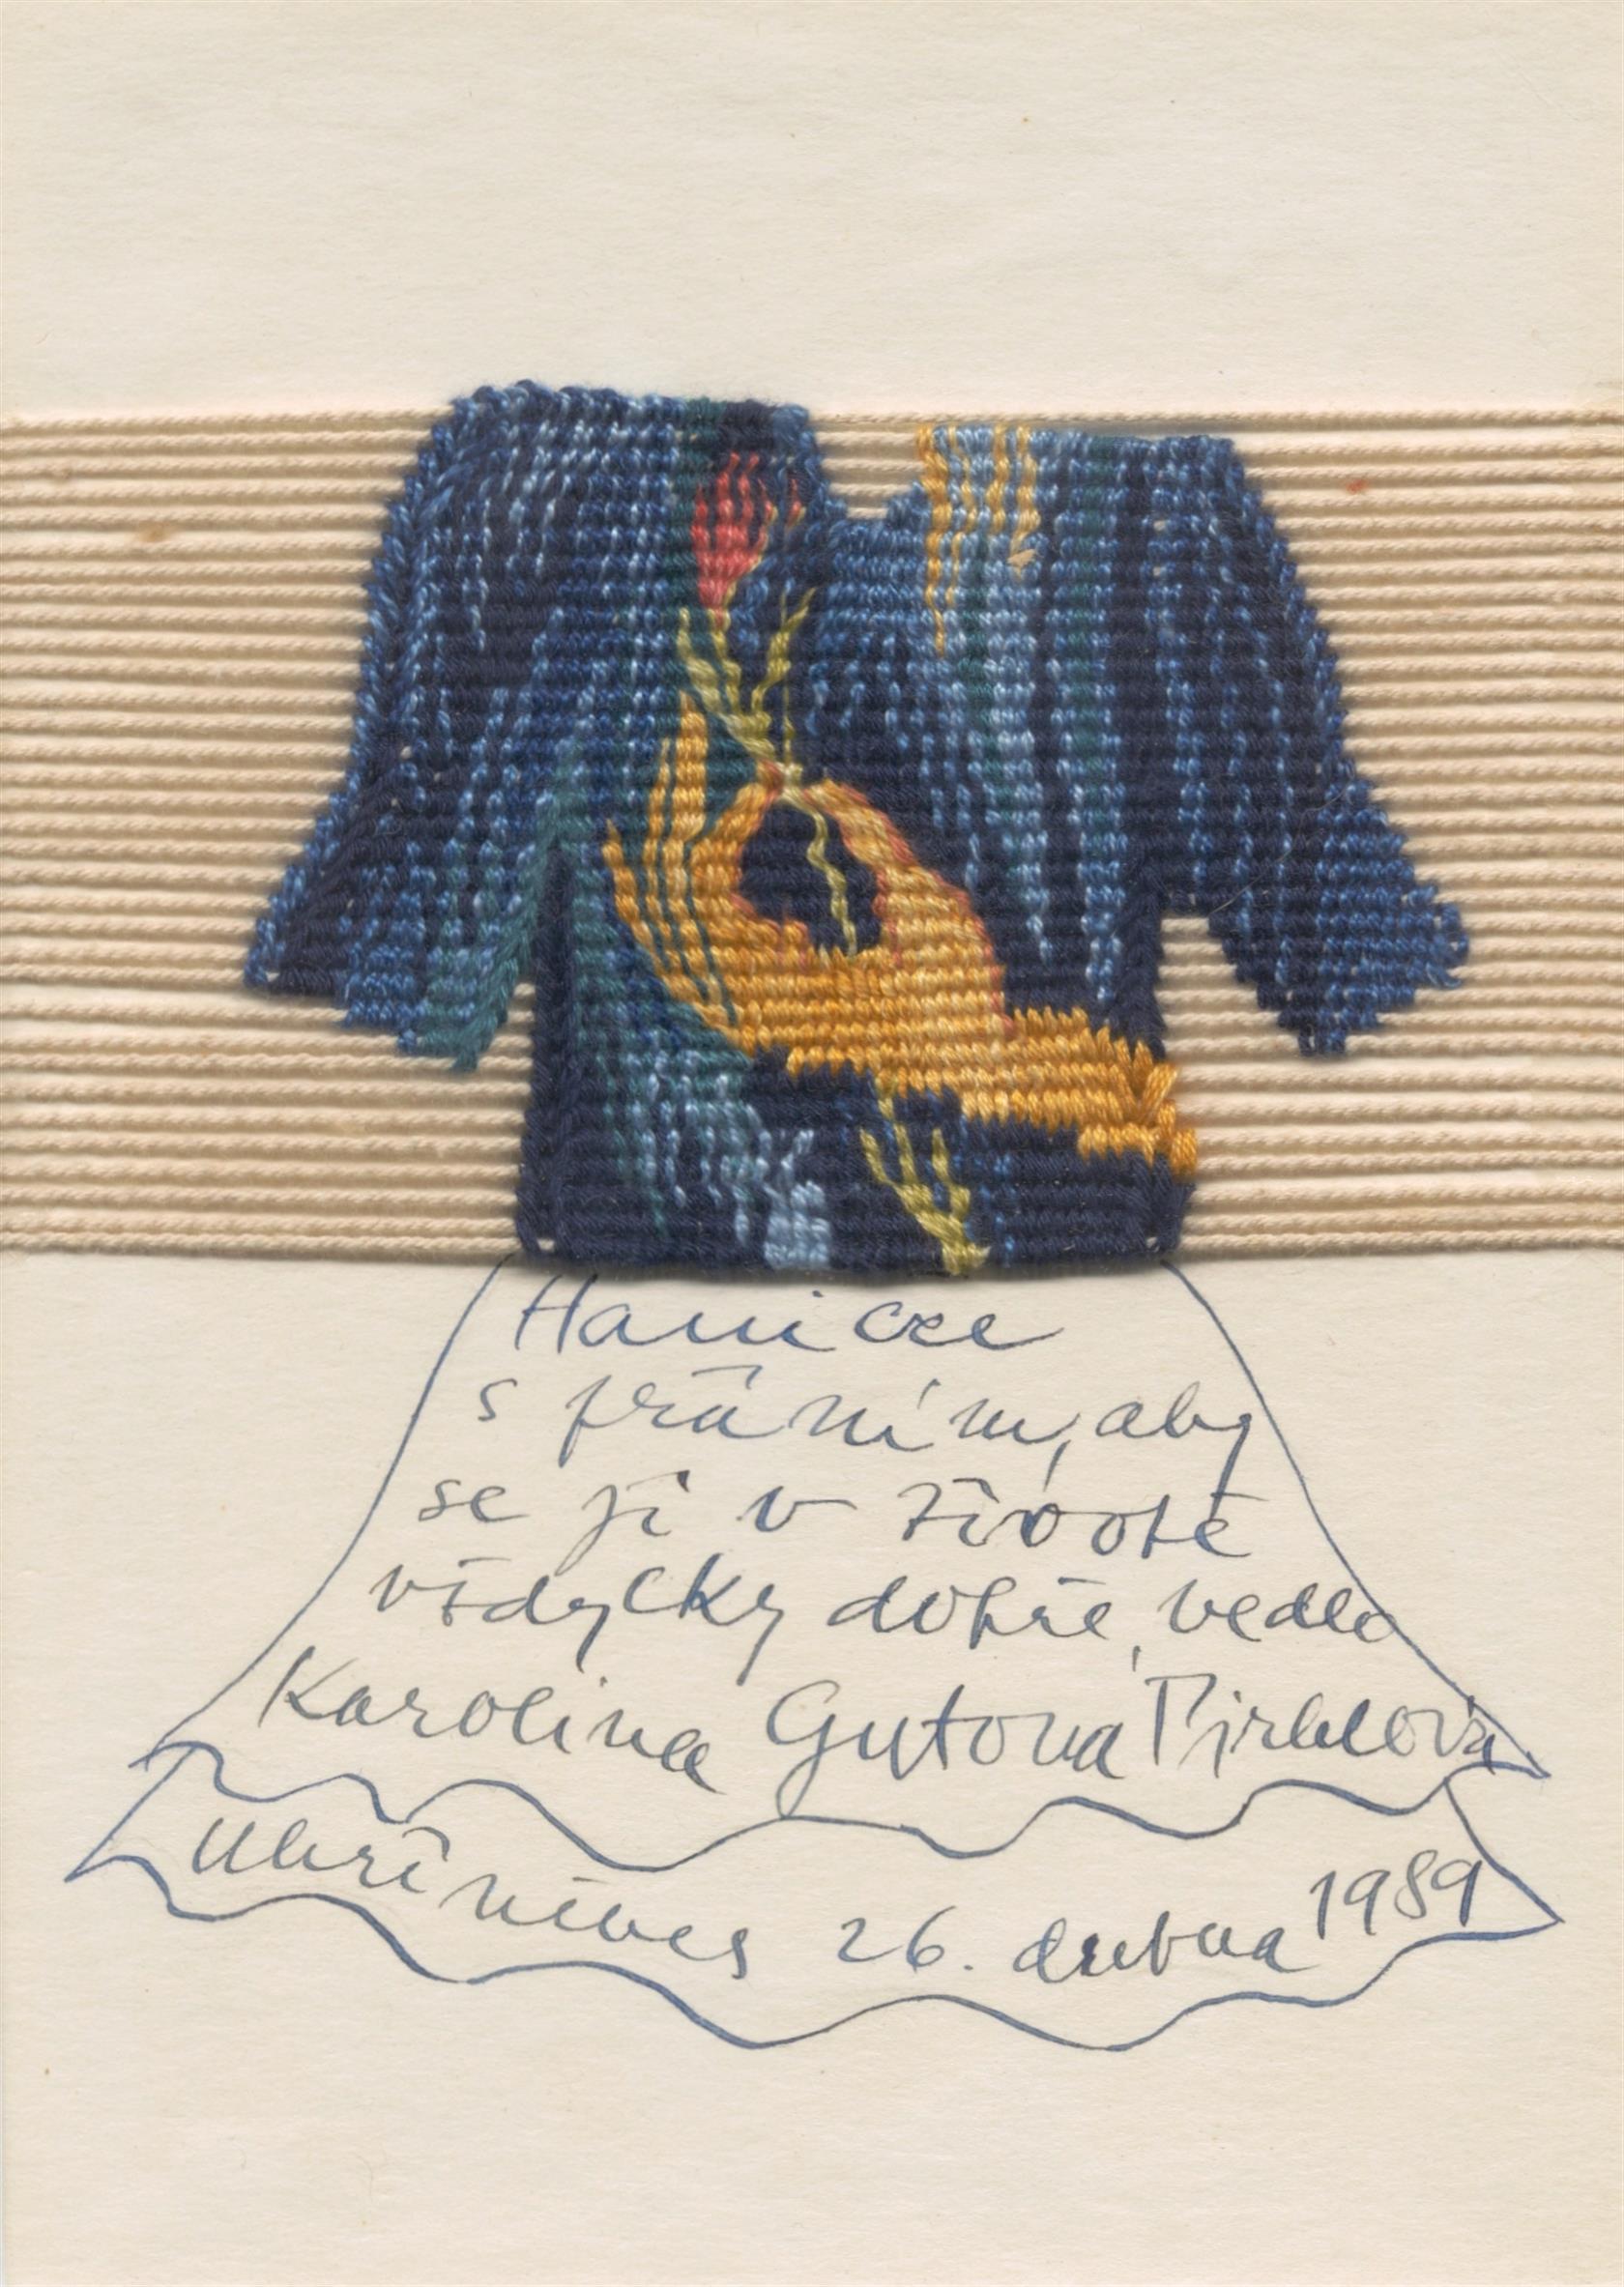 Haničce
s přáním, aby
se jí v životě
vždycky dobře vedlo
Karolina Gutová
Uhříněves 26. dubna 1989